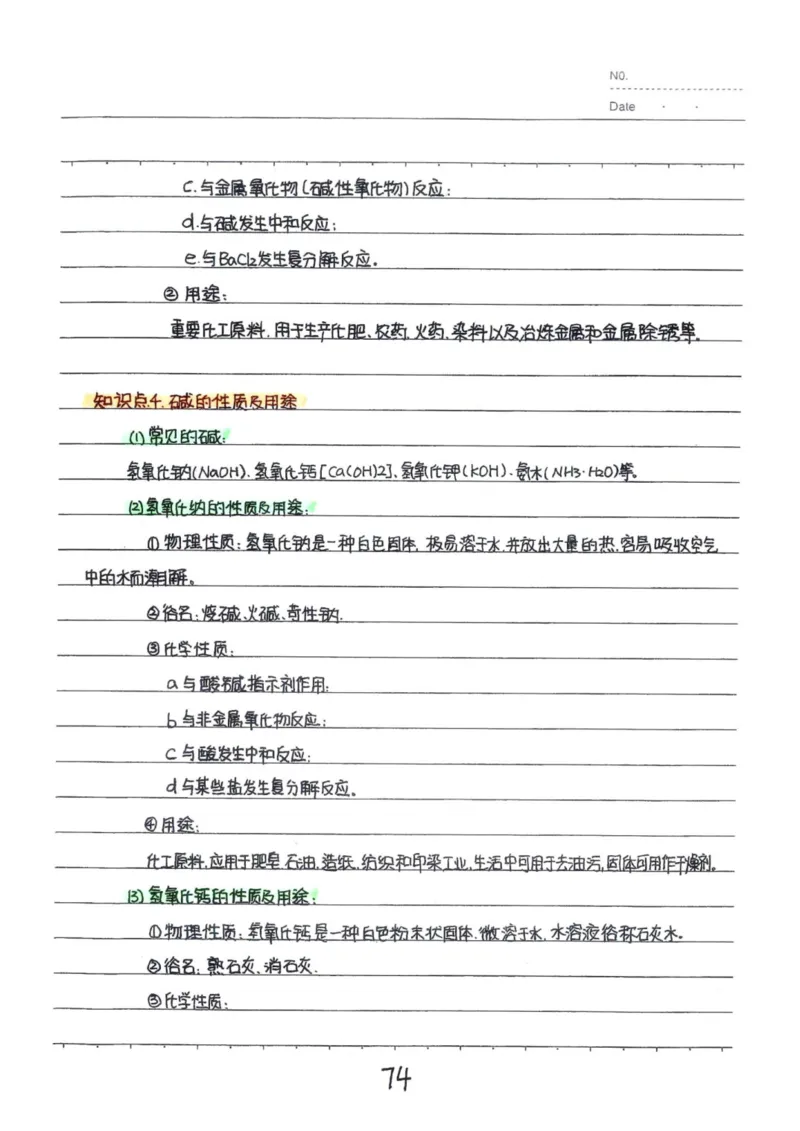 NO.
Date
c.与金属氧化物(碱性氧化物)反应;
d.与碱发生中和反应;
e.与BaCl2发生复分解反应。
② 用途:
重要化工原料,用于生产化肥、农药、火药、染料以及冶炼金属和金属除锈等。
知识点4.碱的性质及用途
(1)常见的碱:
氢氧化钠(NaOH)、氢氧化钙[Ca(OH)2]、氢氧化钾(KOH)、氨水(NH3·H2O)等。
(2)氢氧化钠的性质及用途:
①物理性质:氢氧化钠是一种白色固体,极易溶于水,并放出大量的热,容易吸收空气
中的水而潮解。
②俗名:烧碱、火碱、苛性钠.
③化学性质:
a 与酸碱指示剂作用;
b 与非金属氧化物反应;
c 与酸发生中和反应;
d 与某些盐发生复分解反应。
④用途:
化工原料,应用于肥皂、石油,造纸,纺织和印染工业,生活中可用于去油污,固体可用作干燥剂。
(3)氢氧化钙的性质及用途:
①物理性质:氢氧化钙是一种白色粉末状固体.微溶于水,水溶液俗称石灰水。
②俗名:熟石灰、消石灰.
③化学性质:
74